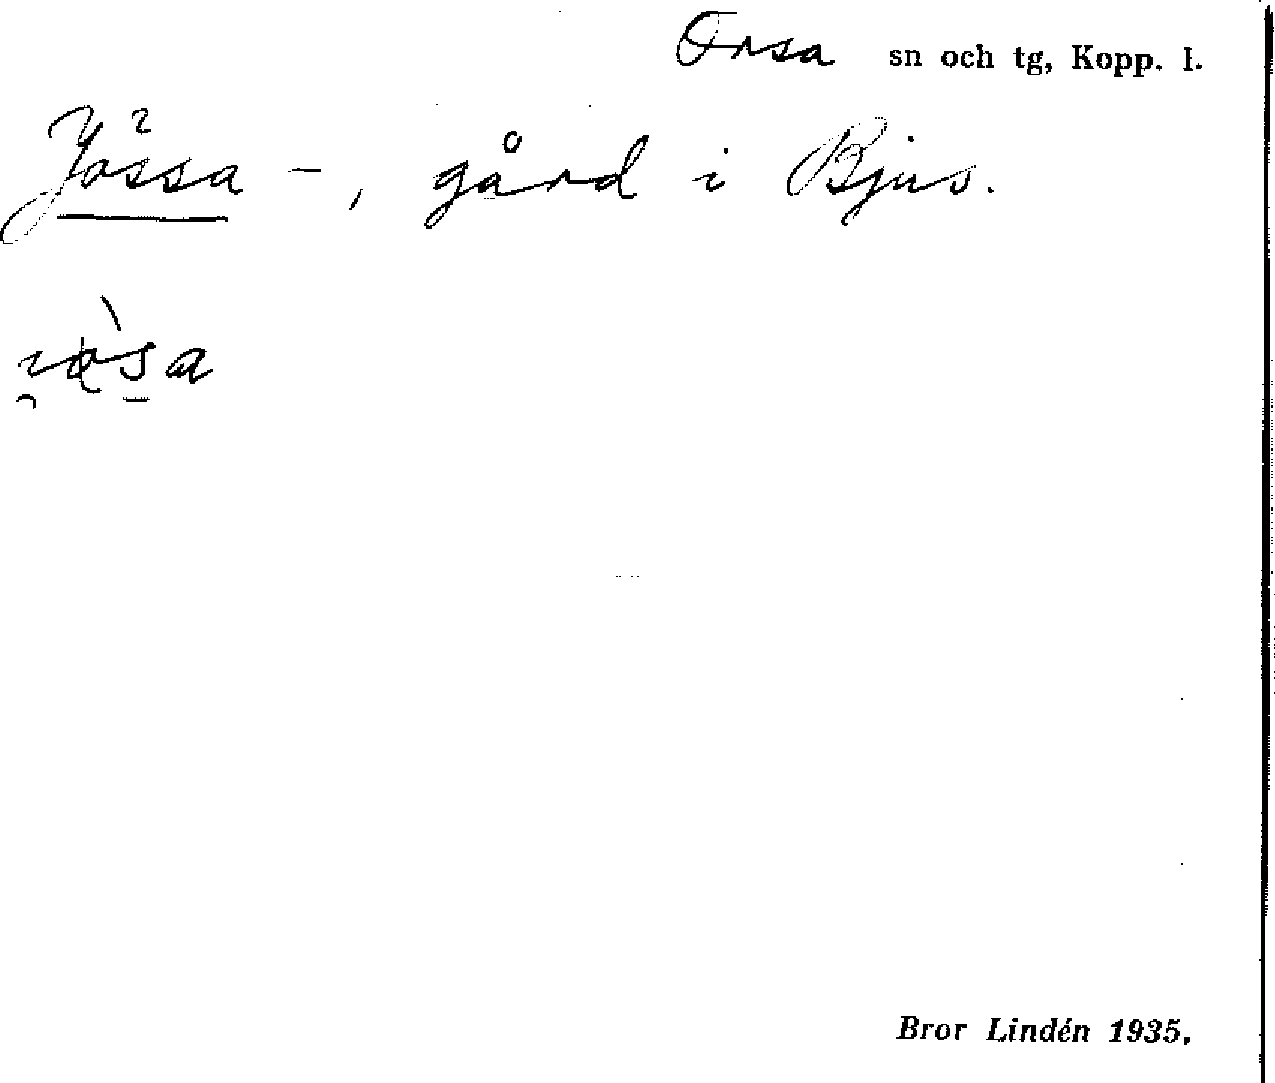 Orsa sn och tg, Kopp. l.
Jössa -, gård i Bjus.
Bror Lindén 1935.